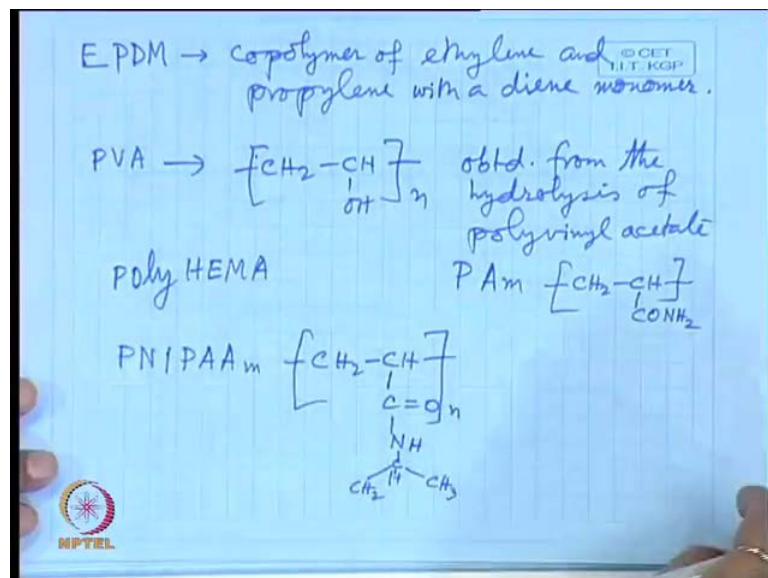 EPDM → copolymer of ethylene and
© CET
I.I.T. KGP
propylene with a diene monomer.
PVA → [CH2-CH]n obtd. from the
OH
hydrolysis of
polyvinyl acetate
Poly HEMA
PAm [CH2-CH]
CONH2
PNIPAAm [CH2-CH]n
C=O
NH
CH
CH2 CH3
NPTEL